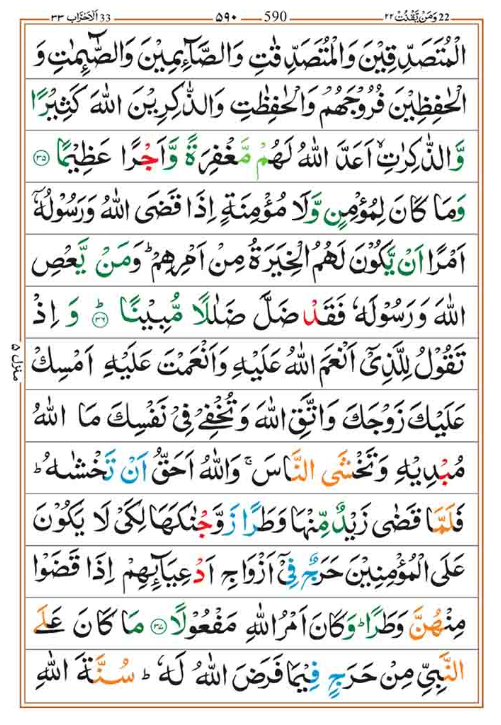 ۳۳ اَلْاَحْزَاب 33 ۵۹۰ 590 ۲۲ وَمَنْ يَّقْنُتْ 22
الْمُتَصَدِّقِيْنَ وَالْمُتَصَدِّقٰتِ وَالصَّآئِمِيْنَ وَالصّٰٓئِمٰتِ وَ
الْحٰفِظِيْنَ فُرُوْجَهُمْ وَالْحٰفِظٰتِ وَالذّٰكِرِيْنَ اللّٰهَ كَثِيْرًا
وَّالذّٰكِرٰتِ ۙ اَعَدَّ اللّٰهُ لَهُمْ مَّغْفِرَةً وَّاَجْرًا عَظِيْمًا ۳۵
وَمَا كَانَ لِمُؤْمِنٍ وَّلَا مُؤْمِنَةٍ اِذَا قَضَى اللّٰهُ وَرَسُوْلُهٗٓ
اَمْرًا اَنْ يَّكُوْنَ لَهُمُ الْخِيَرَةُ مِنْ اَمْرِهِمْ ؕ وَمَنْ يَّعْصِ
اللّٰهَ وَرَسُوْلَهٗ فَقَدْ ضَلَّ ضَلٰلًا مُّبِيْنًا ؕ ۳۶ وَ اِذْ
تَقُوْلُ لِلَّذِيْٓ اَنْعَمَ اللّٰهُ عَلَيْهِ وَاَنْعَمْتَ عَلَيْهِ اَمْسِكْ
عَلَيْكَ زَوْجَكَ وَاتَّقِ اللّٰهَ وَتُخْفِيْ فِيْ نَفْسِكَ مَا اللّٰهُ
مُبْدِيْهِ وَتَخْشَى النَّاسَ ۚ وَاللّٰهُ اَحَقُّ اَنْ تَخْشٰىهُ ؕ
فَلَمَّا قَضٰى زَيْدٌ مِّنْهَا وَطَرًا زَوَّجْنٰكَهَا لِكَيْ لَا يَكُوْنَ
عَلَى الْمُؤْمِنِيْنَ حَرَجٌ فِيْٓ اَزْوَاجِ اَدْعِيَآئِهِمْ اِذَا قَضَوْا
مِنْهُنَّ وَطَرًا ؕ وَكَانَ اَمْرُ اللّٰهِ مَفْعُوْلًا ۳۷ مَا كَانَ عَلَى
النَّبِيِّ مِنْ حَرَجٍ فِيْمَا فَرَضَ اللّٰهُ لَهٗ ؕ سُنَّةَ اللّٰهِ
منزل ۵